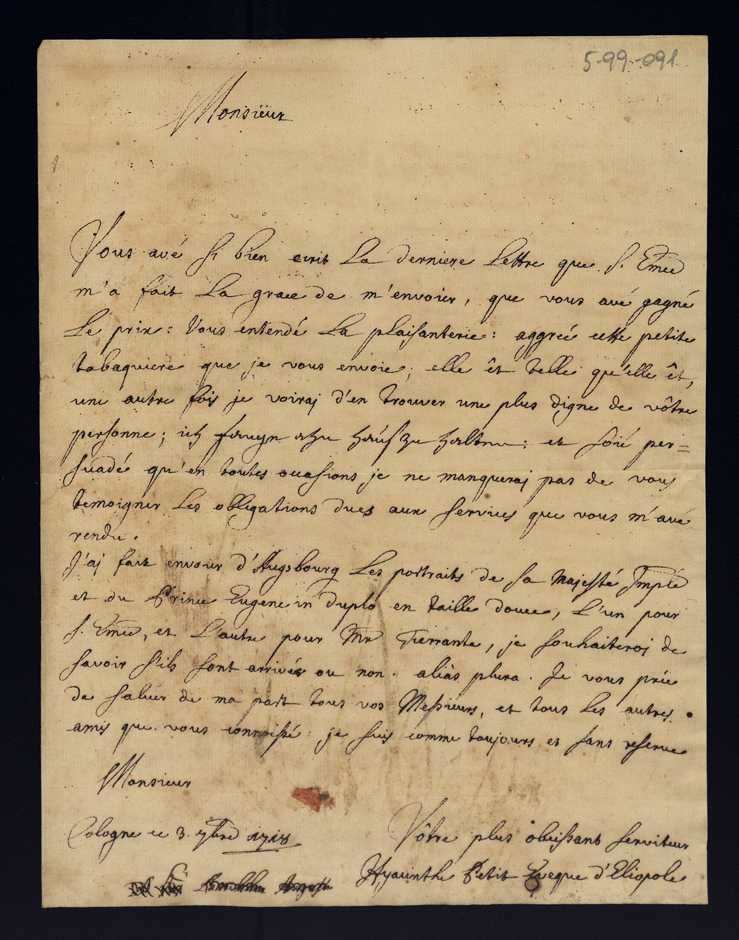 5-99-091
Monsieur
Vous avé si bien ecrit La derniere Lettre que S. Emce
m'a fait La grace de m'envoier, que vous avé gagné
Le prix: Vous entendé La plaisanterie: aggreé cette petite
tabaquiere que je vous envoie; elle êt telle qu'elle êt,
une autre fois je voiraj d'en trouver une plus digne de vôtre
personne; ich zu hauß zu halten: et soié per=
suadé qu'en toutes occasions je ne manqueraj pas de vous
temoigner Les obligations dues aux services que vous m'avé
rendu.
J'aj fait envoier d'Augsbourg Les portraits de sa Majesté Imple
et du Prince Eugene in duplo en taille douce, L'un pour
S. Emce, et L'autre pour Mr Fierrante, je souhaiteroj de
savoir s'ils sont arrivés ou non. aliàs plura. Je vous prie
de saluer de ma part tous vos Messieurs, et tous Les autres
amis que vous connissé: je suis comme toujours et sans reserve
Monsieur
Cologne ce 3. 7bre 1718
Vôtre plus obeissant serviteur
Hyacinthe Petit Eveque d'Eliopole